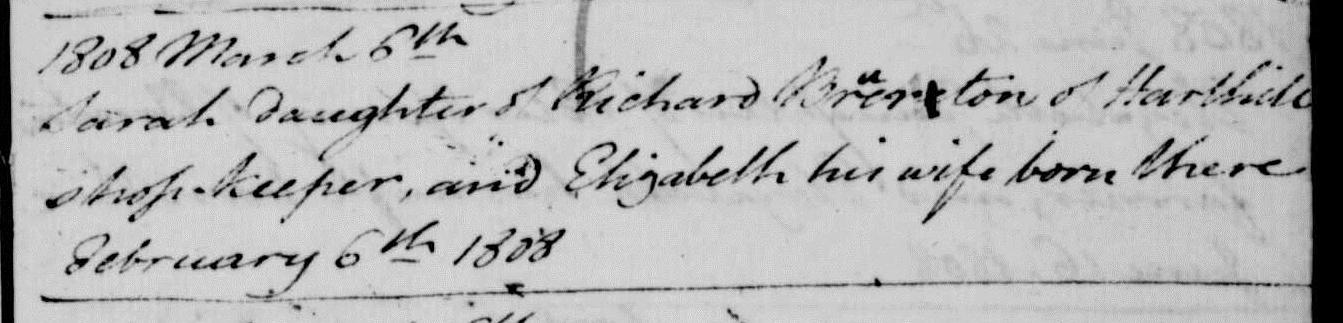 1808 March 6th
Sarah daughter of Richard Brereton of Harthill
shop-keeper, and Elizabeth his wife born there
February 6th 1808